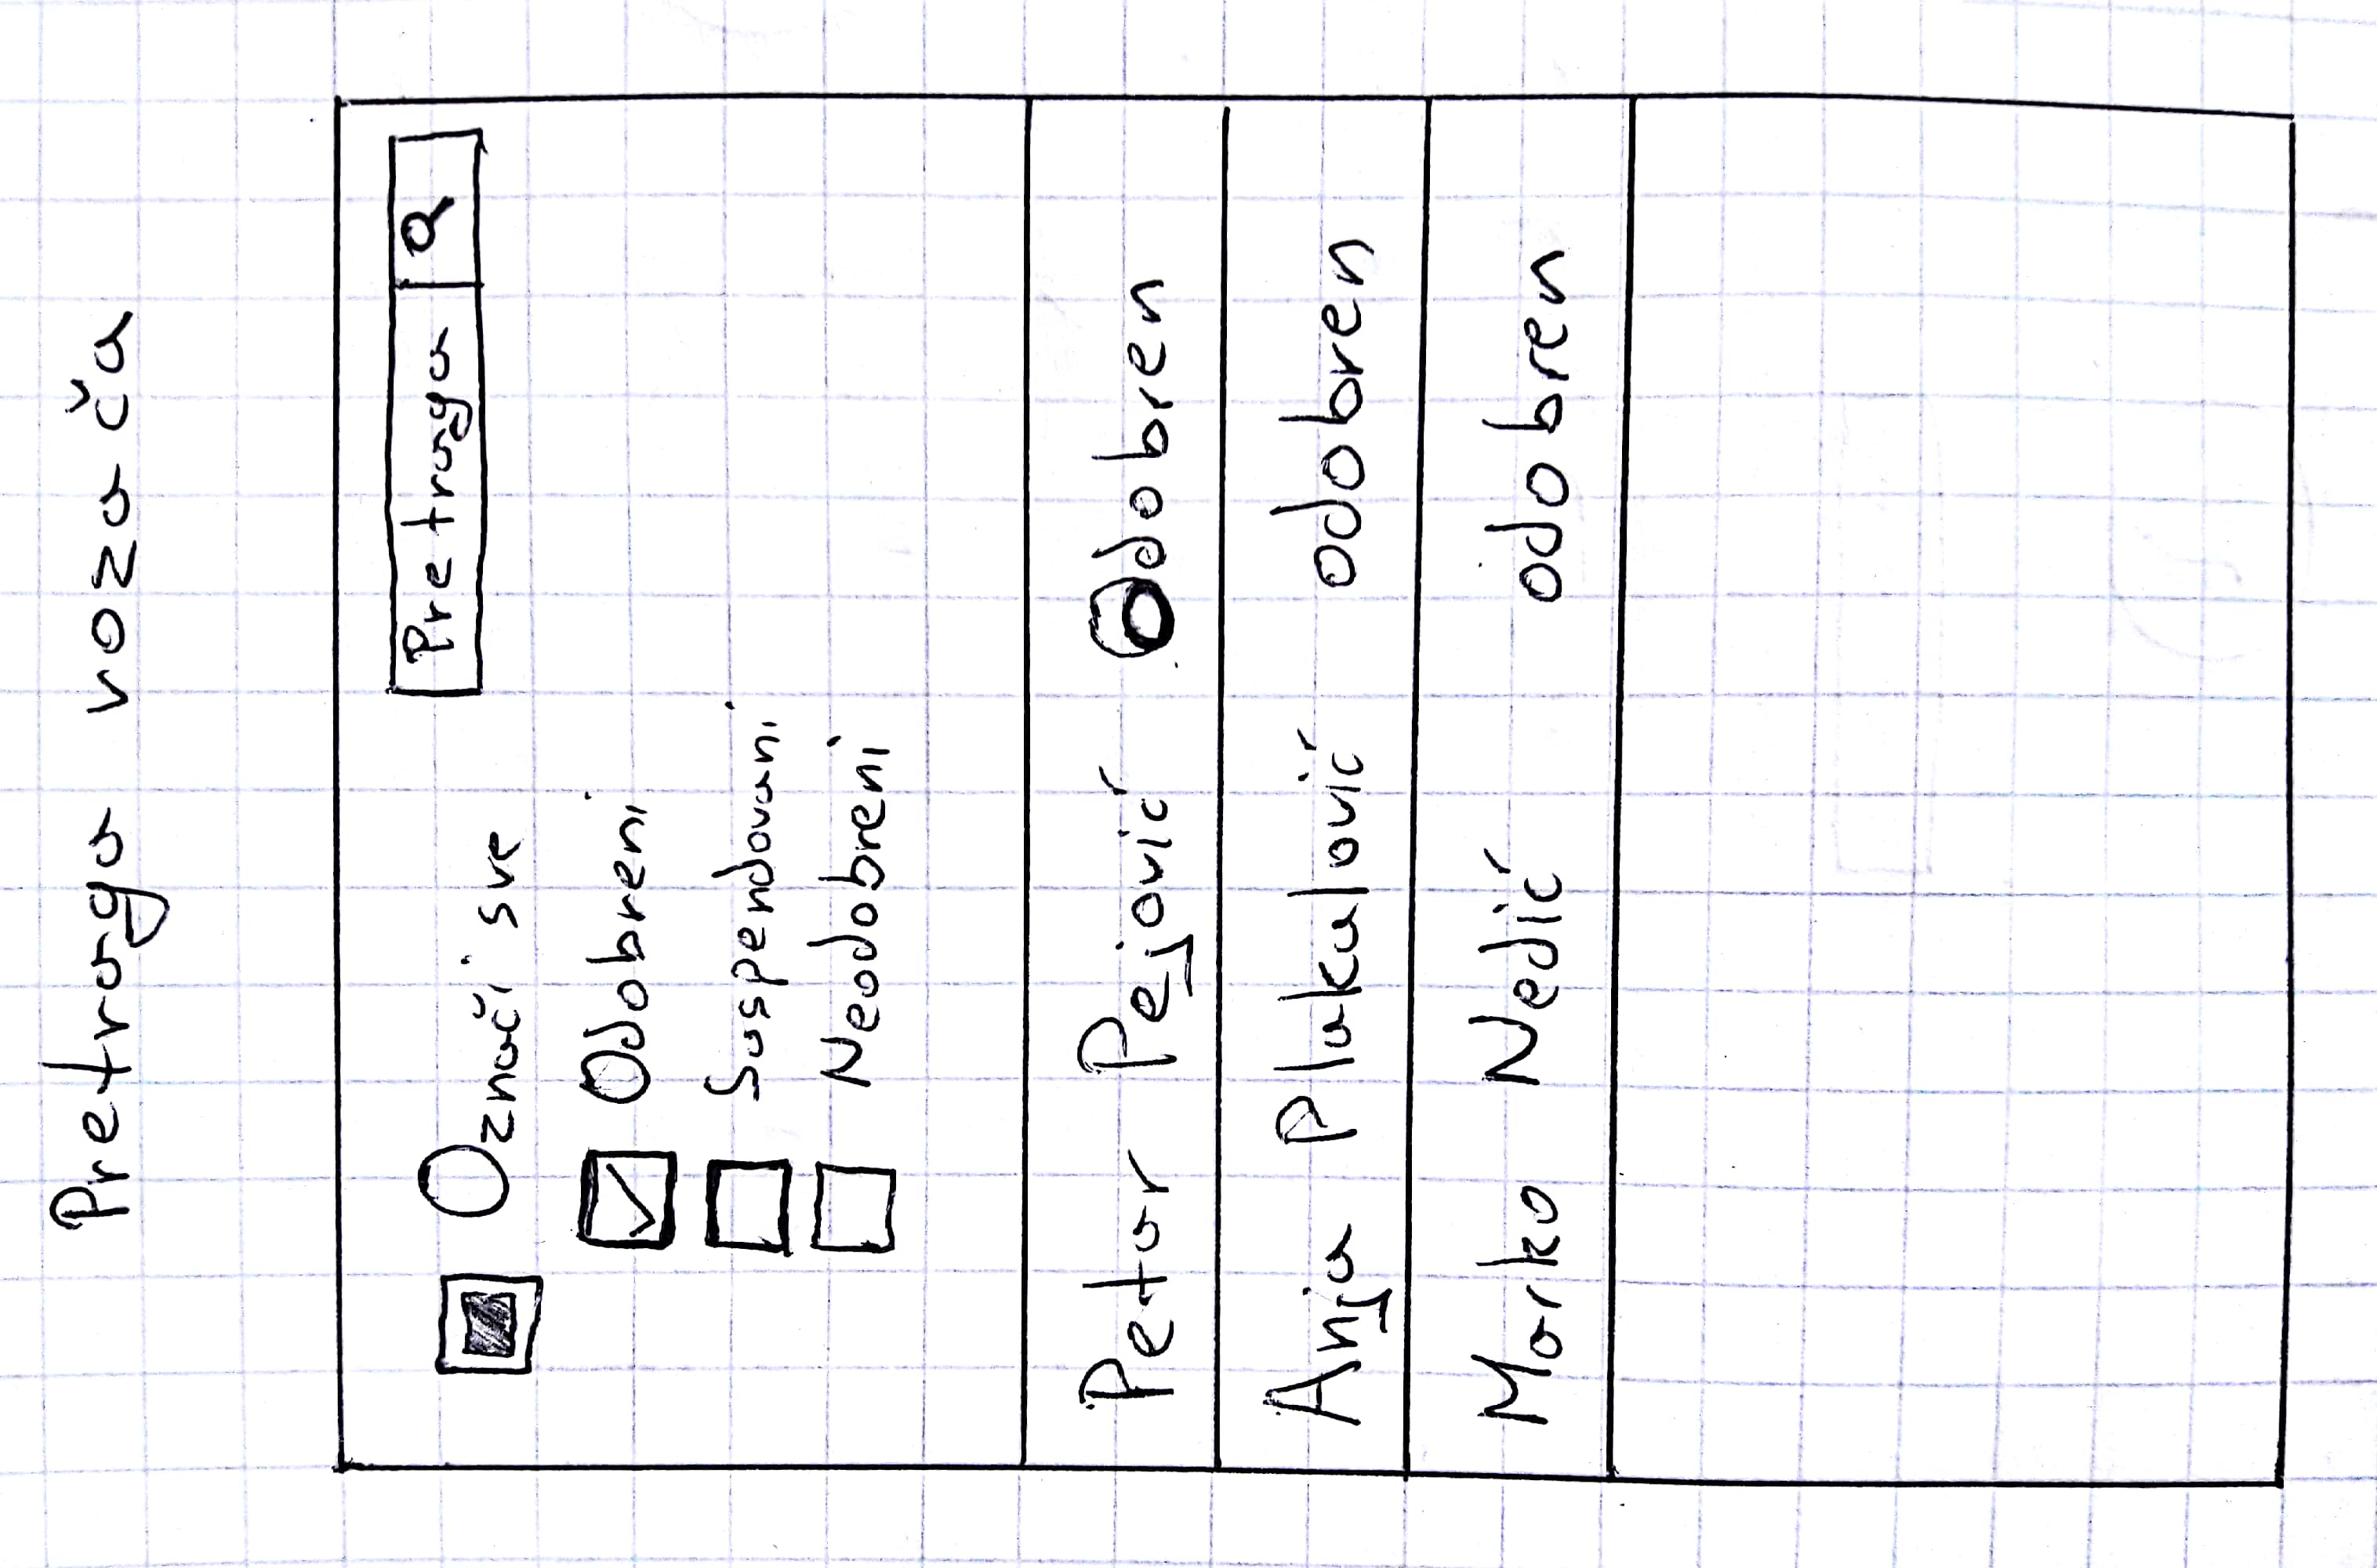 Pretraga vozača
Pretraga
Označi sve
Odobreni
Suspendovani
Neodobreni
Petar Pejović Odobren
Anja Plakalović odobren
Marko Nedić odobren